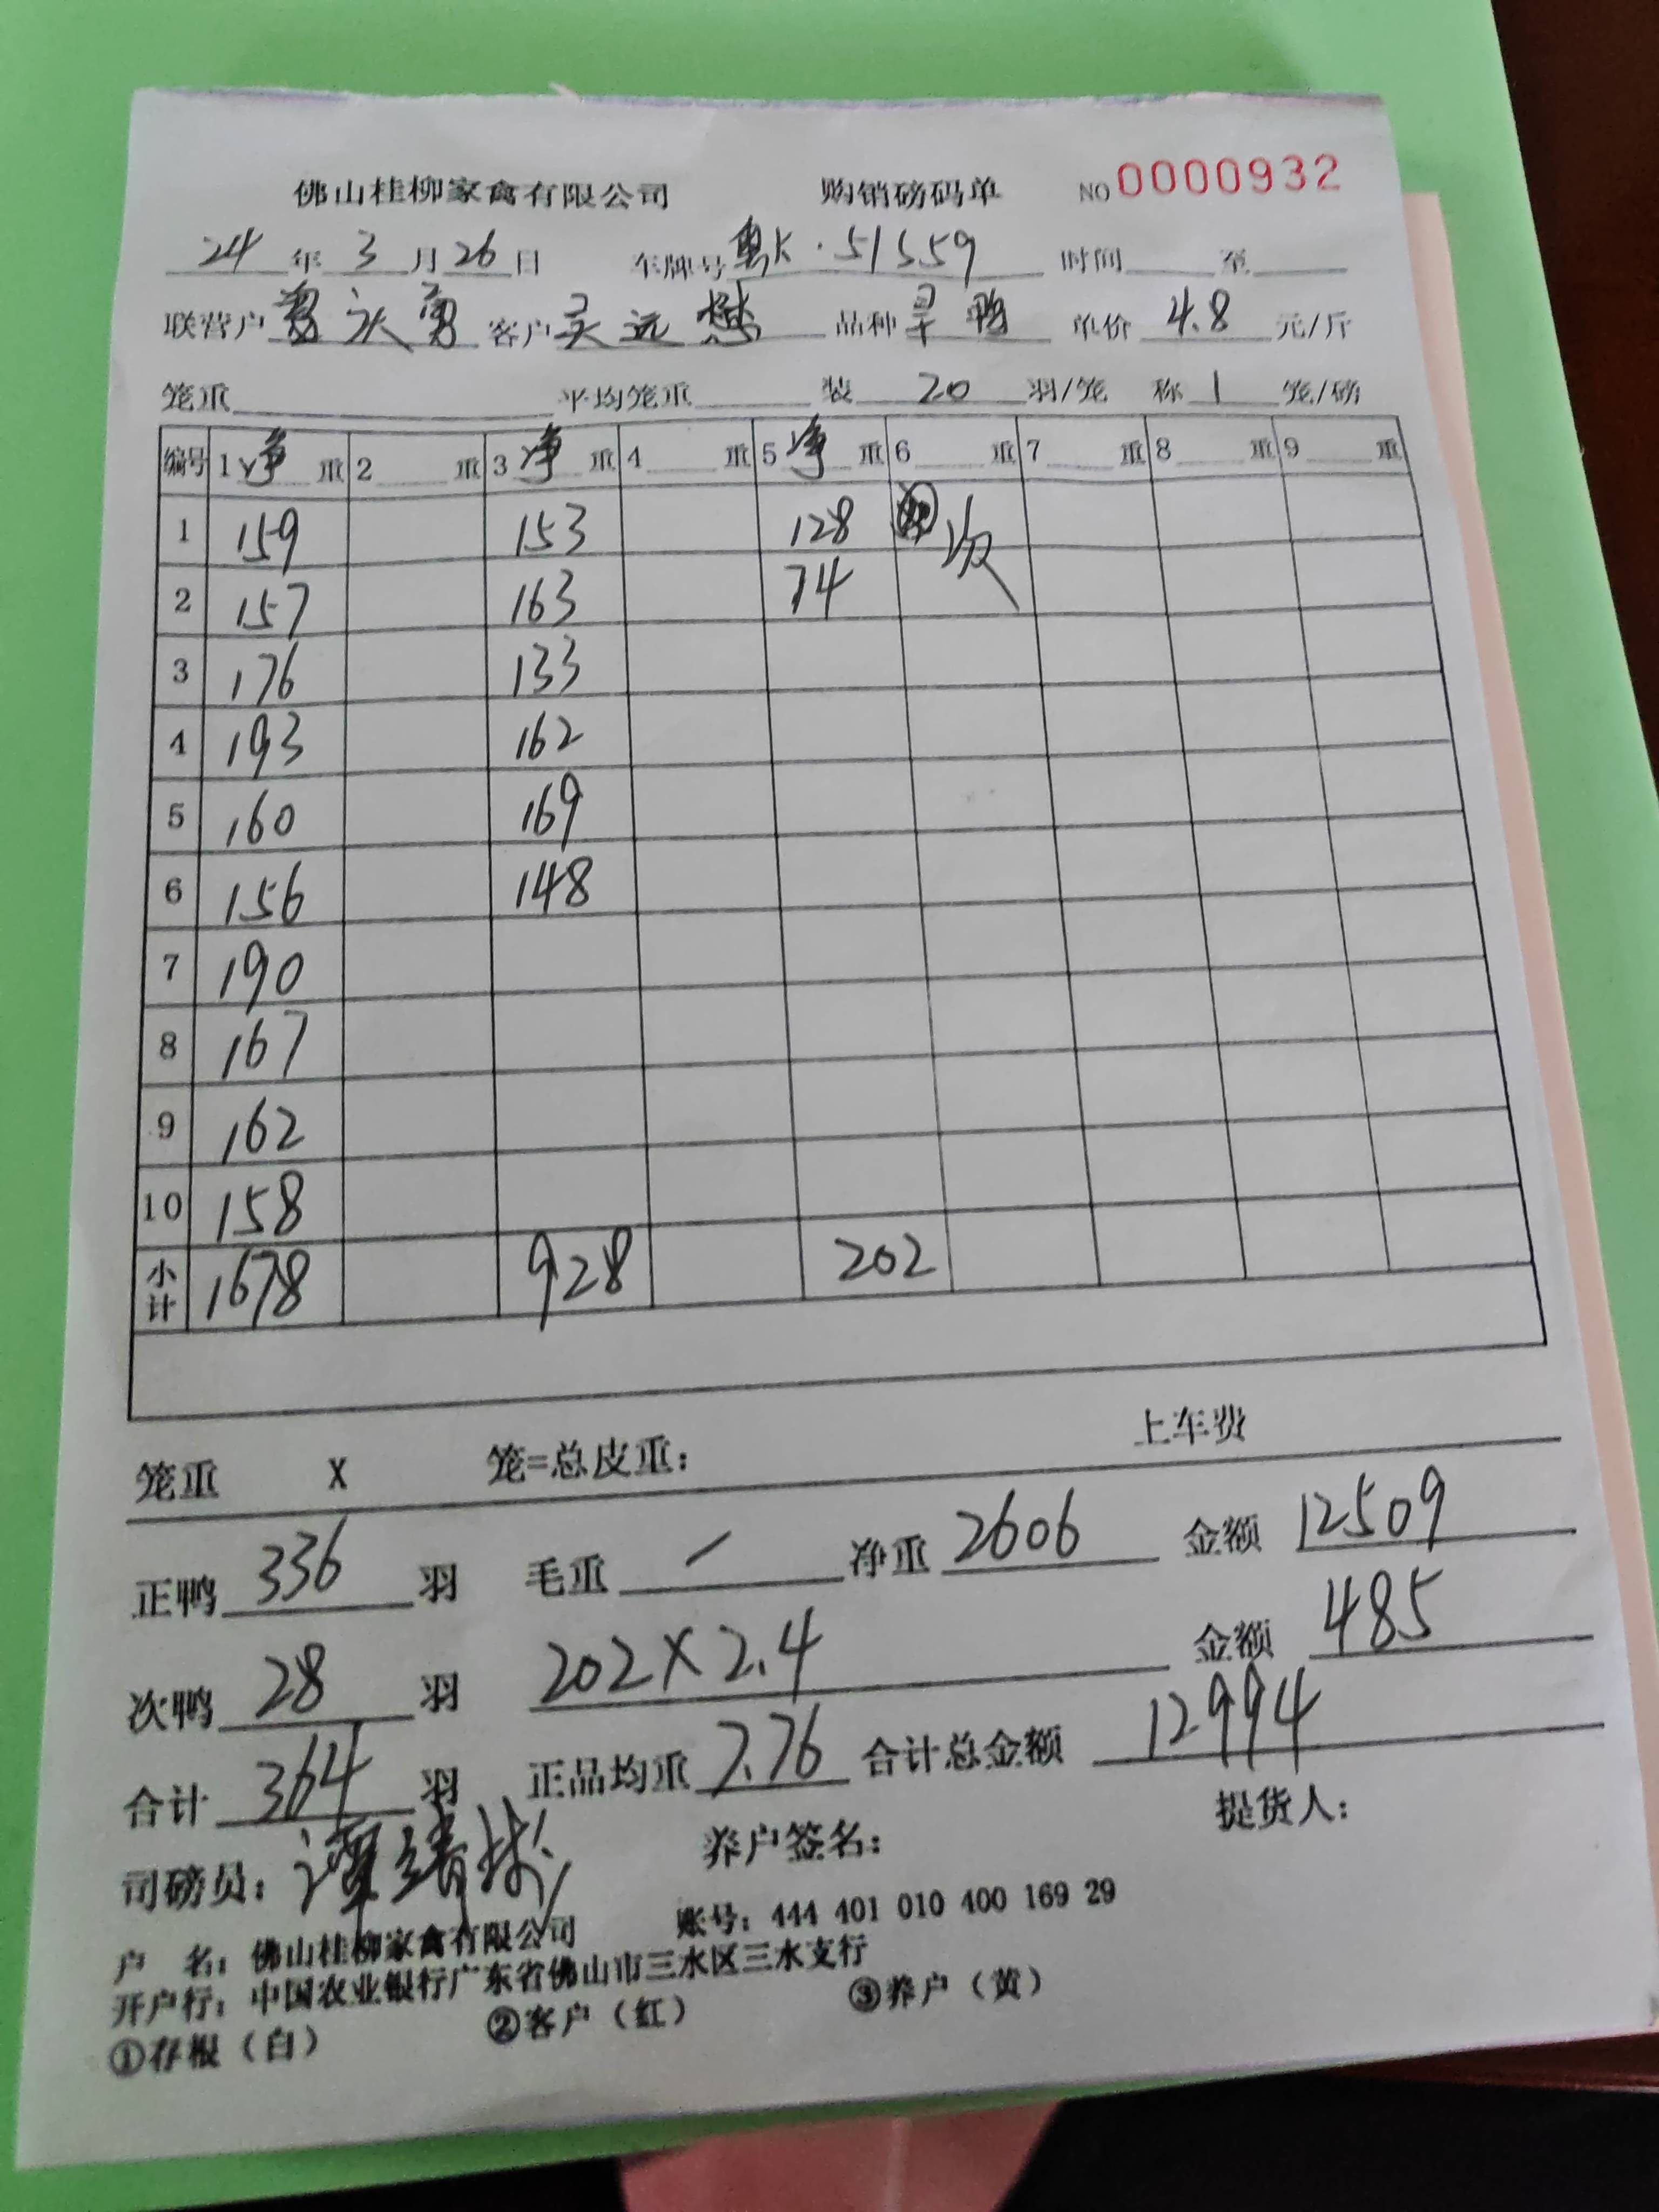 佛山桂柳家禽有限公司 购销磅码单 NO 0000932
24 年 3 月 26 日 车牌号 粤K·51559 时间 至
联营户 客户 吴远 品种 旱鸭 单价 4.8 元/斤
笼重 平均笼重 装 20 羽/笼 称 1 笼/磅
编号 1 净 重 2 重 3 净 重 4 重 5 净 重 6 重 7 重 8 重 9 重
1 159 153 128 次
2 157 163 74
3 176 133
4 193 162
5 160 169
6 156 148
7 190
8 167
9 162
10 158
小计 1678 928 202
笼重 X 笼=总皮重: 上车费
正鸭 336 羽 毛重 / 净重 2606 金额 12509
次鸭 28 羽 202×2.4 金额 485
合计 364 羽 正品均重 7.76 合计总金额 12994
司磅员: 谭绮球 养户签名: 提货人:
户 名: 佛山桂柳家禽有限公司 账号: 444 401 010 400 169 29
开户行: 中国农业银行广东省佛山市三水区三水支行
①存根(白) ②客户(红) ③养户(黄)